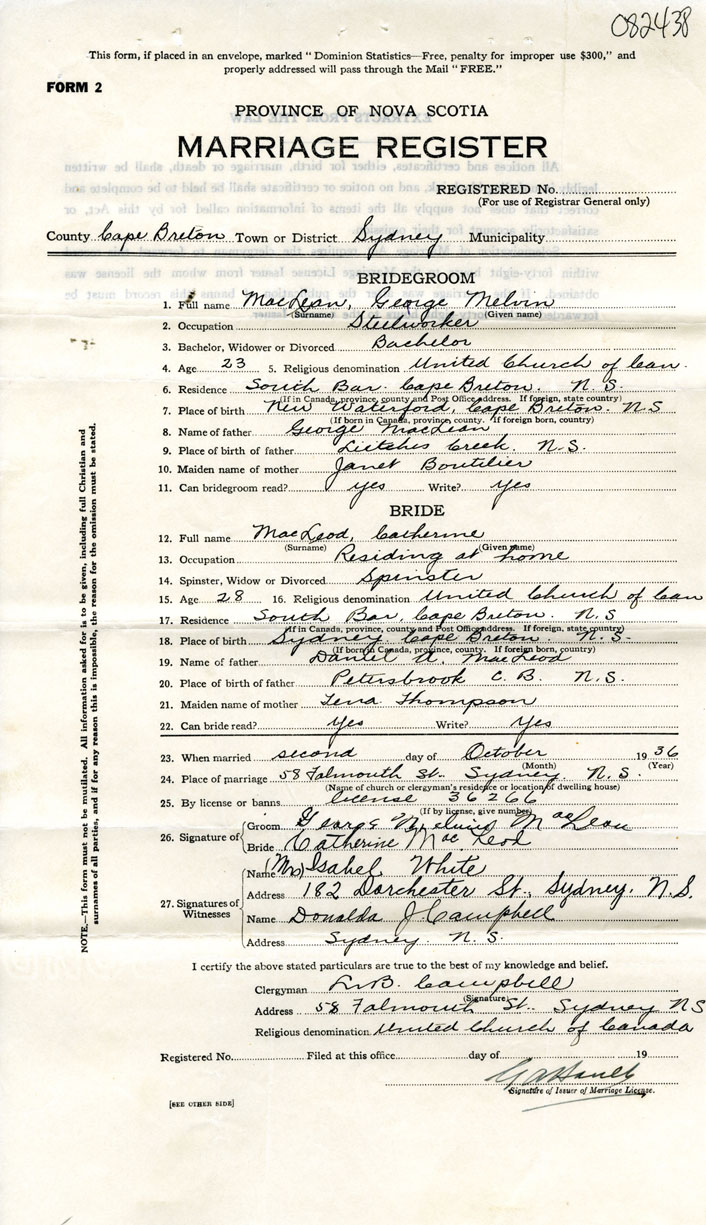 082438
This form, if placed in an envelope, marked "Dominion Statistics—Free, penalty for improper use $300," and
properly addressed will pass through the Mail "FREE."
FORM 2
PROVINCE OF NOVA SCOTIA
MARRIAGE REGISTER
REGISTERED No.
(For use of Registrar General only)
County Cape Breton Town or District Sydney Municipality
BRIDEGROOM
1. Full name MacLean, George Melvin
(Surname) (Given name)
2. Occupation Steelworker
3. Bachelor, Widower or Divorced Bachelor
4. Age 23 5. Religious denomination United Church of Can.
6. Residence South Bar. Cape Breton. N. S.
(If in Canada, province, county and Post Office address. If foreign, state country)
7. Place of birth New Waterford, Cape Breton. N.S
(If born in Canada, province, county. If foreign born, country)
8. Name of father George MacLean
9. Place of birth of father Lietches Creek. N.S.
10. Maiden name of mother Janet Boutilier
11. Can bridegroom read? yes Write? yes
BRIDE
12. Full name MacLeod, Catherine
(Surname) (Given name)
13. Occupation Residing at home
14. Spinster, Widow or Divorced Spinster
15. Age 28 16. Religious denomination United Church of Can
17. Residence South Bar, Cape Breton. N.S
(If in Canada, province, county and Post Office address. If foreign, state country)
18. Place of birth Sydney Cape Breton. N.S.
(If born in Canada, province, county. If foreign born, country)
19. Name of father Daniel A. MacLeod
20. Place of birth of father Petersbrook C.B. N.S.
21. Maiden name of mother Lena Thompson
22. Can bride read? Yes Write? Yes
23. When married second day of October 19 36
(Month) (Year)
24. Place of marriage 58 Falmouth St. Sydney. N.S.
(Name of church or clergyman's residence or location of dwelling house)
25. By license or banns license 36266
(If by license, give number)
26. Signature of
Groom George Melvin MacLean
Bride Catherine MacLeod
27. Signatures of Witnesses
Name (Mrs) Isabel White
Address 182 Dorchester St., Sydney. N.S.
Name Donalda J. Campbell
Address Sydney. N.S.
I certify the above stated particulars are true to the best of my knowledge and belief.
Clergyman Campbell
(Signature)
Address 58 Falmouth St. Sydney NS
Religious denomination United Church of Canada
Registered No. Filed at this office day of 19
Signature of Issuer of Marriage License.
[SEE OTHER SIDE]
NOTE.—This form must not be mutilated. All information asked for is to be given, including full Christian and
surnames of all parties, and if for any reason this is impossible, the reason for the omission must be stated.